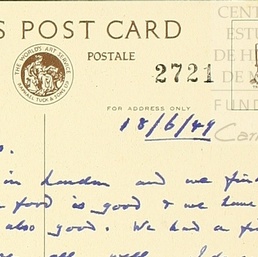 S POST CARD
CENT
ESTU
DE H
DE M
FUND
THE WORLD'S ART SERVICE
RAPHAEL TUCK & SONS LTD
POSTALE
2721
FOR ADDRESS ONLY
18/6/49
s.
in London and we find
food is good & we have
also good. We had a
all well